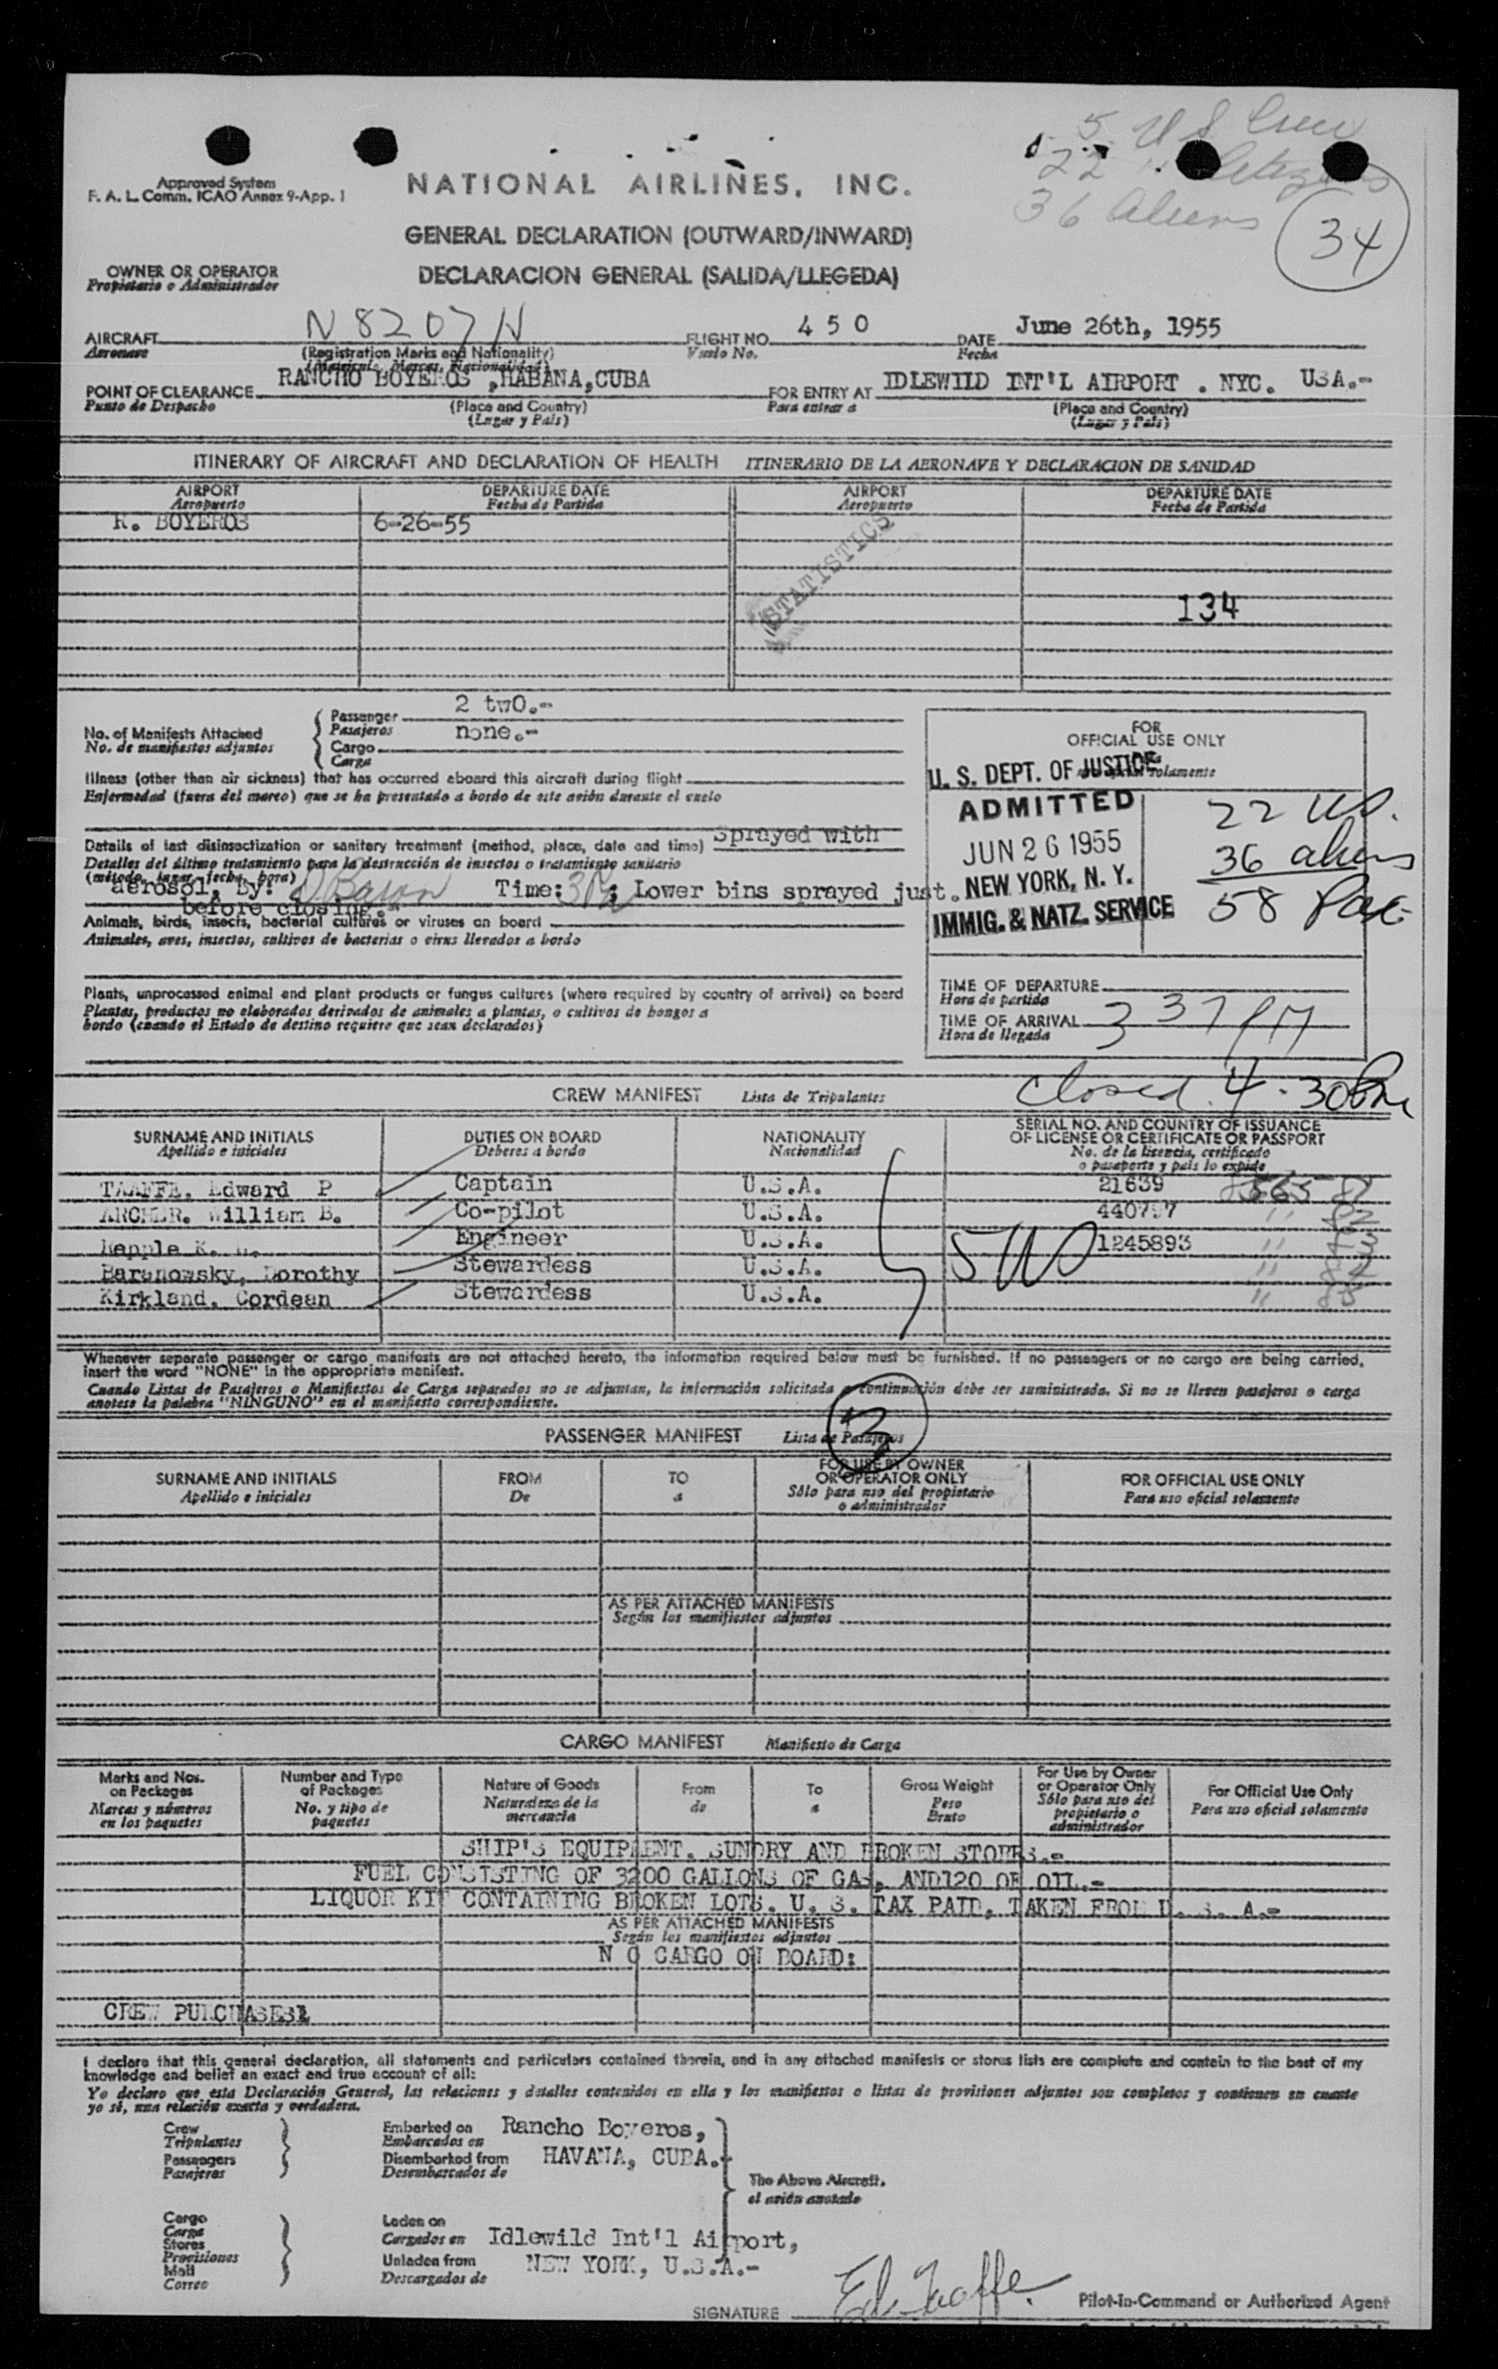 5 U S Crew
22 " Citizens
36 Aliens
34
Approved System
F. A. L. Comm. ICAO Annex 9-App. 1
NATIONAL AIRLINES, INC.
GENERAL DECLARATION (OUTWARD/INWARD)
DECLARACION GENERAL (SALIDA/LLEGEDA)
OWNER OR OPERATOR
Propietario o Administrador
AIRCRAFT N8207H FLIGHT NO. 450 DATE June 26th, 1955
Aeronave (Registration Marks and Nationality) Vuelo No. Fecha
(Matricula, Marcas, Nacionalidad)
POINT OF CLEARANCE RANCHO BOYEROS ,HABANA,CUBA FOR ENTRY AT IDLEWILD INT'L AIRPORT . NYC. USA.-
Punto de Despacho (Place and Country) Para entrar a (Place and Country)
(Lugar y País) (Lugar y País)
ITINERARY OF AIRCRAFT AND DECLARATION OF HEALTH ITINERARIO DE LA AERONAVE Y DECLARACION DE SANIDAD
AIRPORT DEPARTURE DATE AIRPORT DEPARTURE DATE
Aeropuerto Fecha de Partida Aeropuerto Fecha de Partida
R. BOYEROS 6-26-55
STATISTICS
134
2 twO.-
No. of Manifests Attached Passenger
No. de manifiestos adjuntos Pasajeros none.-
Cargo
Carga
Illness (other than air sickness) that has occurred aboard this aircraft during flight
Enfermedad (fuera del mareo) que se ha presentado a bordo de este avión durante el vuelo
Details of last disinsectization or sanitary treatment (method, place, date and time) Sprayed with
Detalles del último tratamiento para la destrucción de insectos o tratamiento sanitario
(método, lugar, fecha, hora)
aerosol, By: Time: ; Lower bins sprayed just.
before closing.
Animals, birds, insects, bacterial cultures or viruses on board
Animales, aves, insectos, cultivos de bacterias o virus llevados a bordo
Plants, unprocessed animal and plant products or fungus cultures (where required by country of arrival) on board
Plantas, productos no elaborados derivados de animales a plantas, o cultivos de hongos a
bordo (cuando el Estado de destino requiere que sean declarados)
FOR
OFFICIAL USE ONLY
solamente
U. S. DEPT. OF JUSTICE
ADMITTED
JUN 26 1955
NEW YORK, N. Y.
IMMIG. & NATZ. SERVICE
22 US.
36 aliens
58 Pax
TIME OF DEPARTURE
Hora de partida
TIME OF ARRIVAL 3 37 PM
Hora de llegada
Closed 4-30 Pm
CREW MANIFEST Lista de Tripulantes
SURNAME AND INITIALS DUTIES ON BOARD NATIONALITY SERIAL NO. AND COUNTRY OF ISSUANCE
OF LICENSE OR CERTIFICATE OR PASSPORT
Apellido e iniciales Deberes a bordo Nacionalidad No. de la licencia, certificado
o pasaporte y país lo expide
TAAFFE, Edward P Captain U.S.A. 21639
ARCHER. William B. Co-pilot U.S.A.
Engineer U.S.A. 1245893
Baranowsky, Dorothy Stewardess U.S.A.
Kirkland, Cordean Stewardess U.S.A.
Whenever separate passenger or cargo manifests are not attached hereto, the information required below must be furnished. If no passengers or no cargo are being carried,
insert the word "NONE" in the appropriate manifest.
Cuando Listas de Pasajeros o Manifiestos de Carga separados no se adjuntan, la información solicitada a continuación debe ser suministrada. Si no se lleven pasajeros o carga
anotese la palabra "NINGUNO" en el manifiesto correspondiente.
PASSENGER MANIFEST Lista de Pasajeros
SURNAME AND INITIALS FROM TO FOR USE BY OWNER
OR OPERATOR ONLY FOR OFFICIAL USE ONLY
Apellido e iniciales De a Sólo para uso del propietario
o administrador Para uso oficial solamente
AS PER ATTACHED MANIFESTS
Según los manifiestos adjuntos
CARGO MANIFEST Manifiesto de Carga
Marks and Nos.
on Packages
Marcas y números
en los paquetes
Number and Type
of Packages
No. y tipo de
paquetes
Nature of Goods
Naturaleza de la
mercancía
From
de
To
a
Gross Weight
Peso
Bruto
For Use by Owner
or Operator Only
Sólo para uso del
propietario o
administrador
For Official Use Only
Para uso oficial solamente
SHIP'S EQUIPMENT. SUNDRY AND BROKEN STORES.-
FUEL CONSISTING OF 3200 GALLONS OF GAS, AND120 OF OIL.-
LIQUOR KIT CONTAINING BROKEN LOTS. U. S. TAX PAID, TAKEN FROM U. S. A.-
AS PER ATTACHED MANIFESTS
Según los manifiestos adjuntos
N O CARGO ON BOARD:
CREW PURCHASES:
I declare that this general declaration, all statements and particulars contained therein, and in any attached manifests or stores lists are complete and contain to the best of my
knowledge and belief an exact and true account of all:
Yo declaro que esta Declaración General, las relaciones y detalles contenidos en ella y los manifiestos o listas de provisiones adjuntos son completos y contienen en cuante
yo sé, una relación exacta y verdadera.
Crew Embarked on Rancho Boyeros,
Tripulantes Embarcados en
Passengers Disembarked from HAVANA, CUBA.
Pasajeros Desembarcados de
The Above Aircraft.
el avión anotado
Cargo Laden on
Carga Cargados en Idlewild Int'l Airport,
Stores
Provisiones Unladen from NEW YORK, U.S.A.-
Mail Descargados de
Correo
SIGNATURE Ed Taaffe. Pilot-in-Command or Authorized Agent